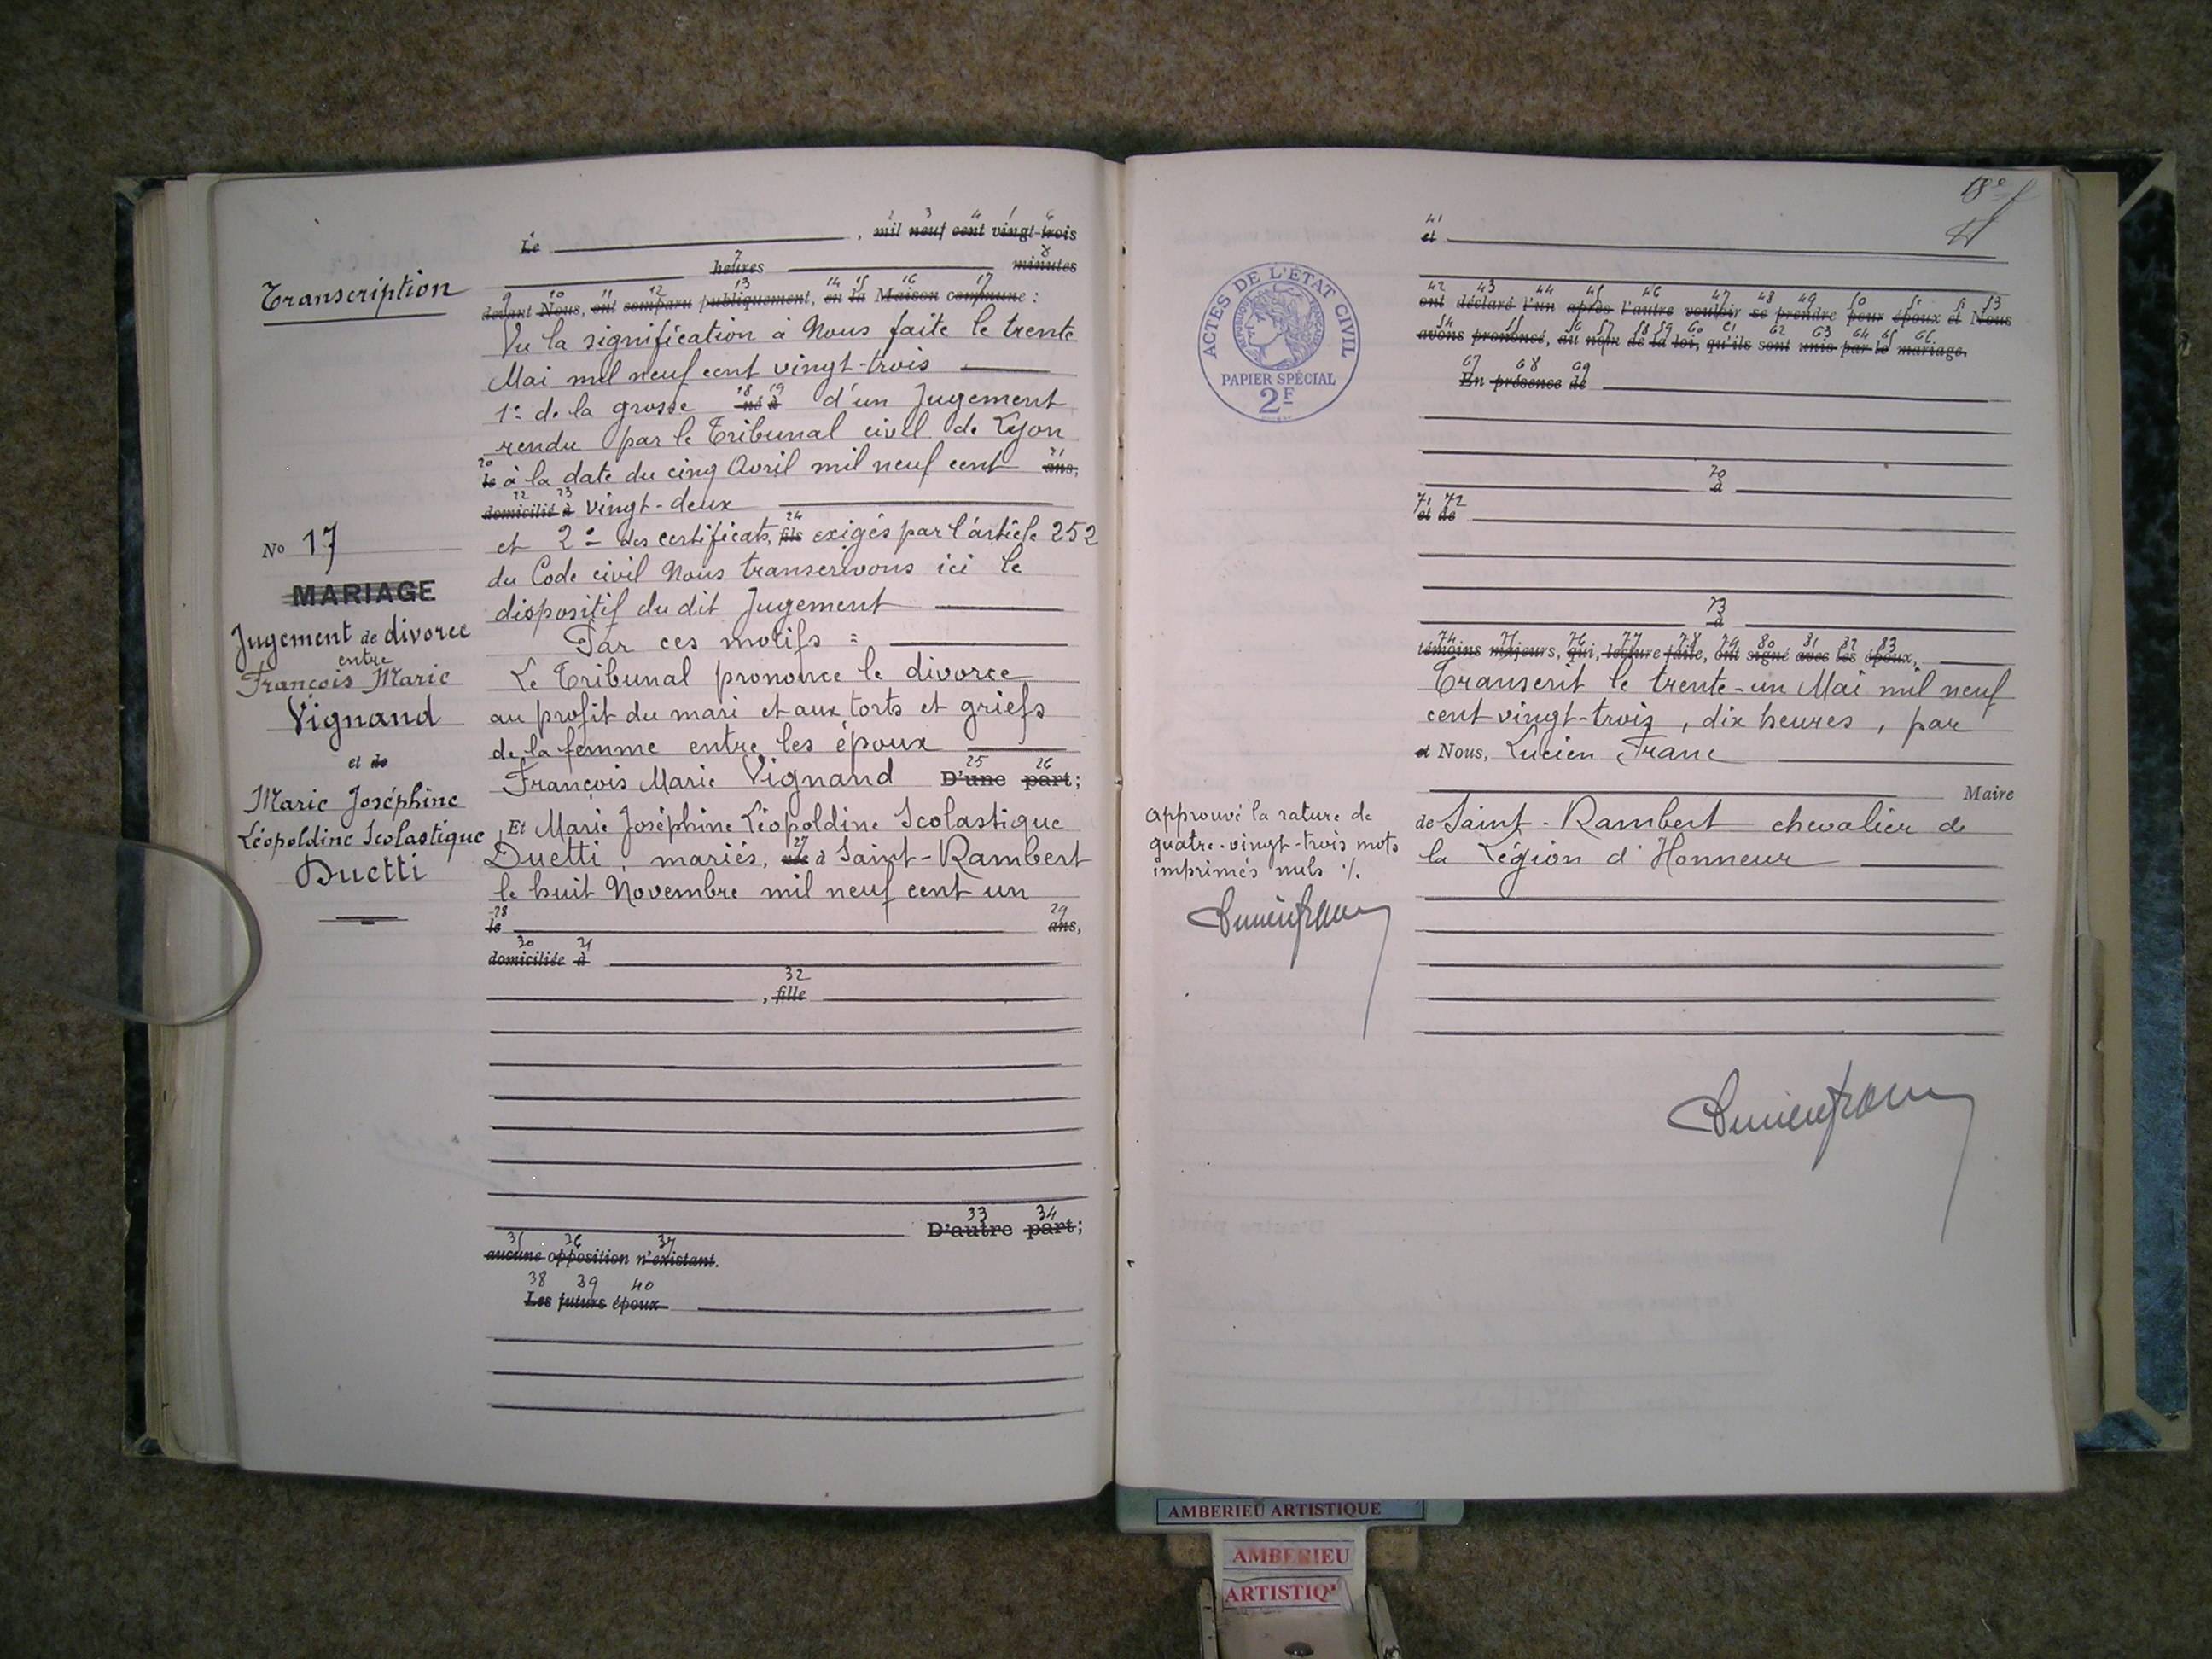 Transcription
No 17
MARIAGE
Jugement de divorce
entre
François Marie
Vignand
et de
Marie Joséphine
Léopoldine Scolastique
Duetti
Le , mil neuf cent vingt-trois
heures minutes
devant Nous, ont comparu publiquement, en la Maison commune :
Vu la signification à Nous faite le trente
Mai mil neuf cent vingt-trois
1º de la grosse né à d'un Jugement
rendu par le Tribunal civil de Lyon
le à la date du cinq Avril mil neuf cent ans,
domicilié à vingt-deux
et 2º des certificats, fils exigés par l'article 252
du Code civil Nous transcrivons ici le
dispositif du dit Jugement
Par ces motifs =
Le Tribunal prononce le divorce
au profit du mari et aux torts et griefs
de la femme entre les époux
François Marie Vignand D'une part;
Et Marie Joséphine Léopoldine Scolastique
Duetti, mariés, née à Saint-Rambert
le huit Novembre mil neuf cent un
le ans,
domiciliée à
, fille
D'autre part;
aucune opposition n'existant.
Les futurs époux
18e f
et
ACTES DE L'ÉTAT CIVIL
RÉPUBLIQUE FRANÇAISE
PAPIER SPÉCIAL
2F
ont déclaré l'un après l'autre vouloir se prendre pour époux et Nous
avons prononcé, au nom de la loi, qu'ils sont unis par le mariage.
En présence de
à
et de
à
témoins majeurs, qui, lecture faite, ont signé avec les époux,
Transcrit le trente-un Mai mil neuf
cent vingt-trois, dix heures, par
et Nous, Lucien Franc
Maire
de Saint-Rambert chevalier de
la Légion d'Honneur
approuvé la rature de
quatre-vingt-trois mots
imprimés nuls %.
Lucien Franc
Lucien Franc
AMBERIEU ARTISTIQUE
AMBERIEU
ARTISTIQ